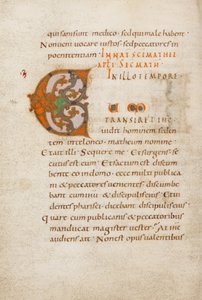 qui sani sunt medico. sed qui male habent
Non veni vocare iustos. sed peccatores in
penitentiam. IN NAT SCI MATHEI
APLI SEC MATH
IN ILLO TEMPORE
TRANSIRET IHC
vidit hominem seden
tem in teloneo. matheum nomine
Et ait illi. Sequere me. Et surgens se
cutus est eum. Et factum est discum
bente eo in domo. ecce multi publica
ni & peccatores venientes. discumbe
bant cum ihu & discipulis eius. Et vi
dentes pharisei. dicebant discipulis eius.
Quare cum publicanis & peccatoribus
manducat magister vester. At ihc
audiens ait. Non est opus valentibus